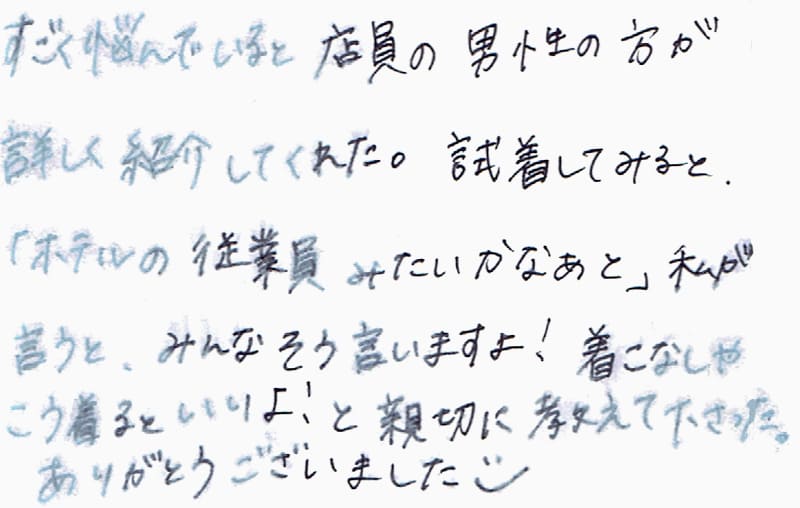 すごく悩んでいると店員の男性の方が
詳しく紹介してくれた。試着してみると、
「ホテルの従業員みたいかなあと」私が
言うと、みんなそう言いますよ！着こなしや
こう着るといいよ！と親切に教えて下さった。
ありがとうございました